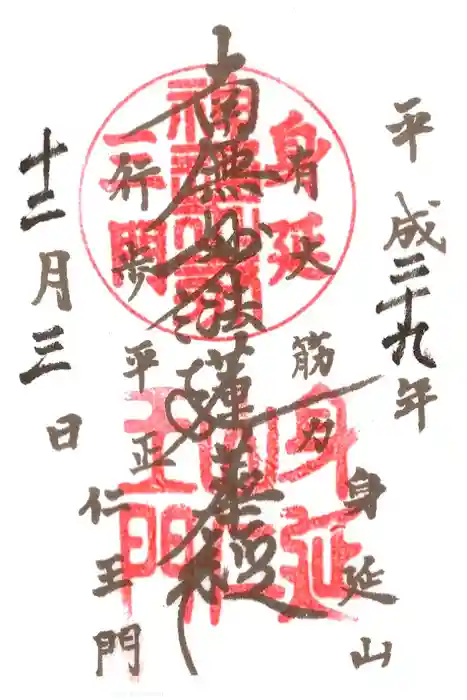 平成二十九年
身延山
有大筋力
南無妙法蓮華経
行歩平正
仁王門
十二月三日
身延
三門
身延
王門